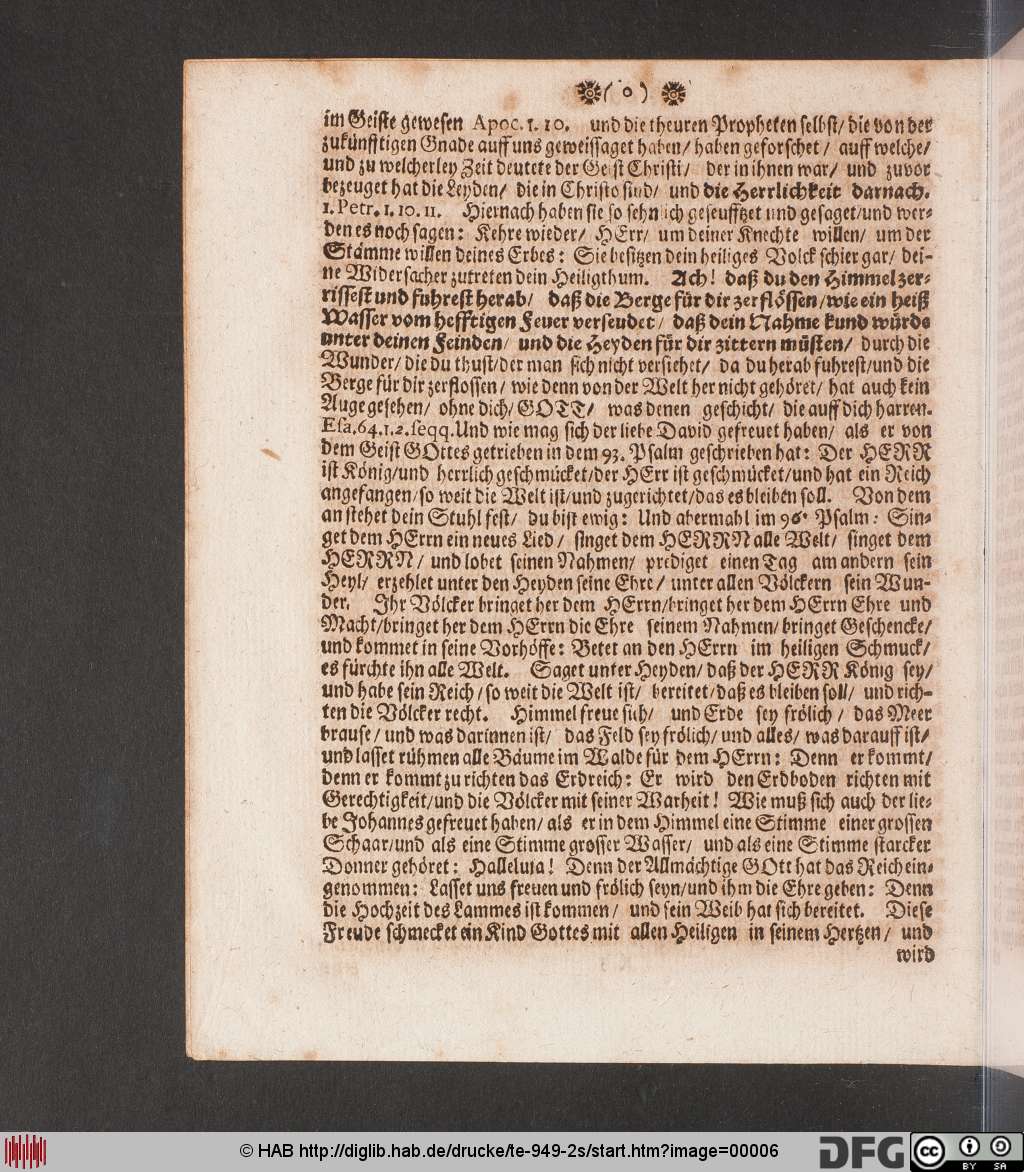 ( o )
im Geiste gewesen Apoc. 1. 10. und die theuren Propheten selbst/ die von der
zukünfftigen Gnade auff uns geweissaget haben/ haben geforschet/ auff welche/
und zu welcherley Zeit deutete der Geist Christi/ der in ihnen war/ und zuvor
bezeuget hat die Leyden/ die in Christo sind/ und die Herrlichkeit darnach.
1. Petr. 1. 10. 11. Hiernach haben sie so sehnlich geseufftzet und gesaget/und wer-
den es noch sagen: Kehre wieder/ HErr/ um deiner Knechte willen/ um der
Stämme willen deines Erbes: Sie besitzen dein heiliges Volck schier gar/ dei-
ne Widersacher zutreten dein Heiligthum. Ach! daß du den Himmel zer-
rissest und fuhrest herab/ daß die Berge für dir zerflössen/wie ein heiß
Wasser vom hefftigen Feuer verseudet/ daß dein Nahme kund würde
unter deinen Feinden/ und die Heyden für dir zittern müsten/ durch die
Wunder/ die du thust/der man sich nicht versiehet/ da du herab fuhrest/und die
Berge für dir zerflossen/ wie denn von der Welt her nicht gehöret/ hat auch kein
Auge gesehen/ ohne dich/ GOTT/ was denen geschicht/ die auff dich harren.
Esa. 64. 1. 2. seqq. Und wie mag sich der liebe David gefreuet haben/ als er von
dem Geist GOttes getrieben in dem 93. Psalm geschrieben hat: Der HERR
ist König/und herrlich geschmücket/der HErr ist geschmücket/und hat ein Reich
angefangen/so weit die Welt ist/und zugerichtet/das es bleiben soll. Von dem
an stehet dein Stuhl fest/ du bist ewig: Und abermahl im 96. Psalm: Sin-
get dem HErrn ein neues Lied/ singet dem HERRN alle Welt/ singet dem
HERRN/ und lobet seinen Nahmen/ prediget einen Tag am andern sein
Heyl/ erzehlet unter den Heyden seine Ehre/ unter allen Völckern sein Wun-
der. Ihr Völcker bringet her dem HErrn/bringet her dem HErrn Ehre und
Macht/bringet her dem HErrn die Ehre seinem Nahmen/ bringet Geschencke/
und kommet in seine Vorhöffe: Betet an den HErrn im heiligen Schmuck/
es fürchte ihn alle Welt. Saget unter Heyden/ daß der HERR König sey/
und habe sein Reich/ so weit die Welt ist/ bereitet/daß es bleiben soll/ und rich-
ten die Völcker recht. Himmel freue sich/ und Erde sey frölich/ das Meer
brause/ und was darinnen ist/ das Feld sey frölich/ und alles/ was darauff ist/
und lasset rühmen alle Bäume im Walde für dem HErrn: Denn er kommt/
denn er kommt zu richten das Erdreich: Er wird den Erdboden richten mit
Gerechtigkeit/und die Völcker mit seiner Warheit! Wie muß sich auch der lie-
be Johannes gefreuet haben/ als er in dem Himmel eine Stimme einer grossen
Schaar/und als eine Stimme grosser Wasser/ und als eine Stimme starcker
Donner gehöret: Halleluja! Denn der Allmächtige GOtt hat das Reich ein-
genommen: Lasset uns freuen und frölich seyn/und ihm die Ehre geben: Denn
die Hochzeit des Lammes ist kommen/ und sein Weib hat sich bereitet. Diese
Freude schmecket ein Kind Gottes mit allen Heiligen in seinem Hertzen/ und
wird
© HAB http://diglib.hab.de/drucke/te-949-2s/start.htm?image=00006
DFG
cc BY SA